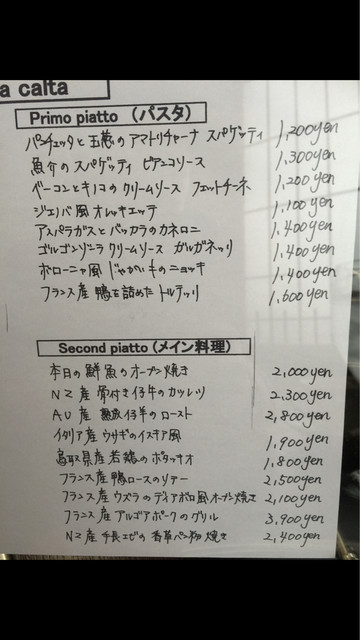 a calta
Primo piatto (パスタ)
パンチェッタと玉葱のアマトリチャーナ スパゲッティ 1,200yen
魚介のスパゲッティ ビアンコソース 1,300yen
ベーコンとキノコのクリームソース フェットチーネ 1,200yen
ジェノバ風 オレッキエッテ 1,100yen
アスパラガスとバッカラのカネロニ 1,400yen
ゴルゴンゾーラ クリームソース ガルガネッリ 1,400yen
ボローニャ風 じゃがいものニョッキ 1,400yen
フランス産 鴨を詰めた トルテッリ 1,600yen
Second piatto (メイン料理)
本日の鮮魚のオーブン焼き 2,000yen
NZ産 骨付き仔牛のカツレツ 2,300yen
AU産 熟成仔羊のロースト 2,800yen
イタリア産 ウサギのイスキア風 1,900yen
鳥取県産若鶏のポタッキオ 1,800yen
フランス産鴨ロースのソテー 2,500yen
フランス産 ウズラのディアボロ風オーブン焼き 2,100yen
フランス産 ブルゴアポークのグリル 3,900yen
NZ産 手長エビの香草パン粉焼き 2,400yen